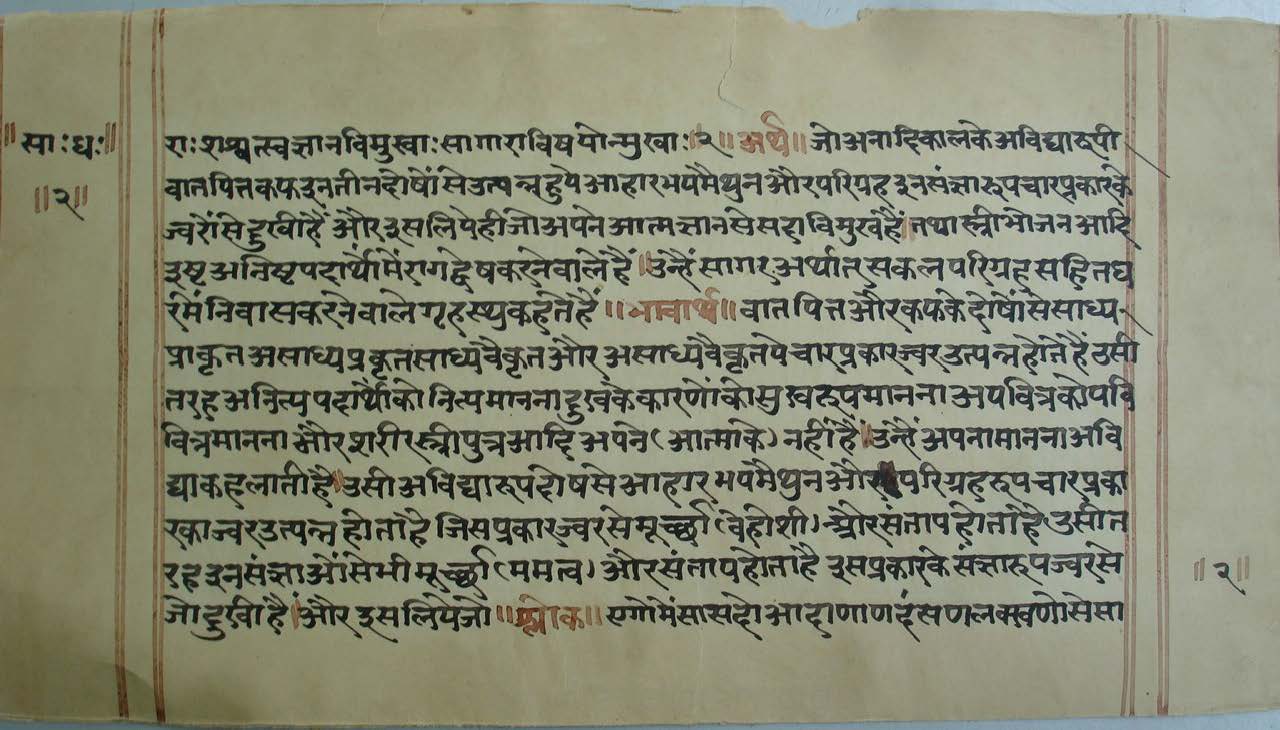 ॥ साः धः ॥
॥ २ ॥
राः शश्वत्स्वज्ञानविमुखाः सागारा विषयोन्मुखाः ॥ २ ॥ अर्थ ॥ जो अनादिकालके अविद्यारूपी
वातपित्तकफ इन तीन दोषोंसे उत्पन्न हुये आहार भय मैथुन और परिग्रह इन संज्ञारूप चार प्रकारके
ज्वरोंसे दुखी हैं और इसलिये ही जो अपने आत्मज्ञानसे सदा विमुख हैं तथा स्त्री भोजन आदि
इष्ट अनिष्ट पदार्थोंमें रागद्वेष करनेवाले हैं । उन्हें सागर अर्थात् सकल परिग्रह सहित घ
रमें निवास करनेवाले गृहस्थ कहते हैं ॥ भावार्थ ॥ वात पित्त और कफके दोषोंसे साध्य
प्राकृत असाध्य प्रकृत साध्य वैकृत और असाध्य वैकृत ये चार प्रकार ज्वर उत्पन्न होते हैं उसी
तरह अनित्य पदार्थोंको नित्य मानना दुखके कारणोंको सुखरूप मानना अपवित्रको पवि
वित्र मानना और शरीर स्त्री पुत्र आदि अपने (आत्माके) नहीं हैं । उन्हें अपना मानना अवि
द्या कहलाती है । उसी अविद्यारूप दोषसे आहार भय मैथुन और परिग्रहरूप चार प्रका
रका ज्वर उत्पन्न होता है जिस प्रकार ज्वरसे मूर्च्छा (वेहोशी) और संताप होता है उसी त
रह इन संज्ञाओंसे भी मूर्च्छा (ममत्व) और संताप होता है इस प्रकारके संज्ञारूप ज्वरसे
जो दुखी हैं । और इसलिये जो ॥ श्लोक ॥ एगो मे सासदो आदा णाणदंसणलक्खणो सेसा
॥ २ ॥